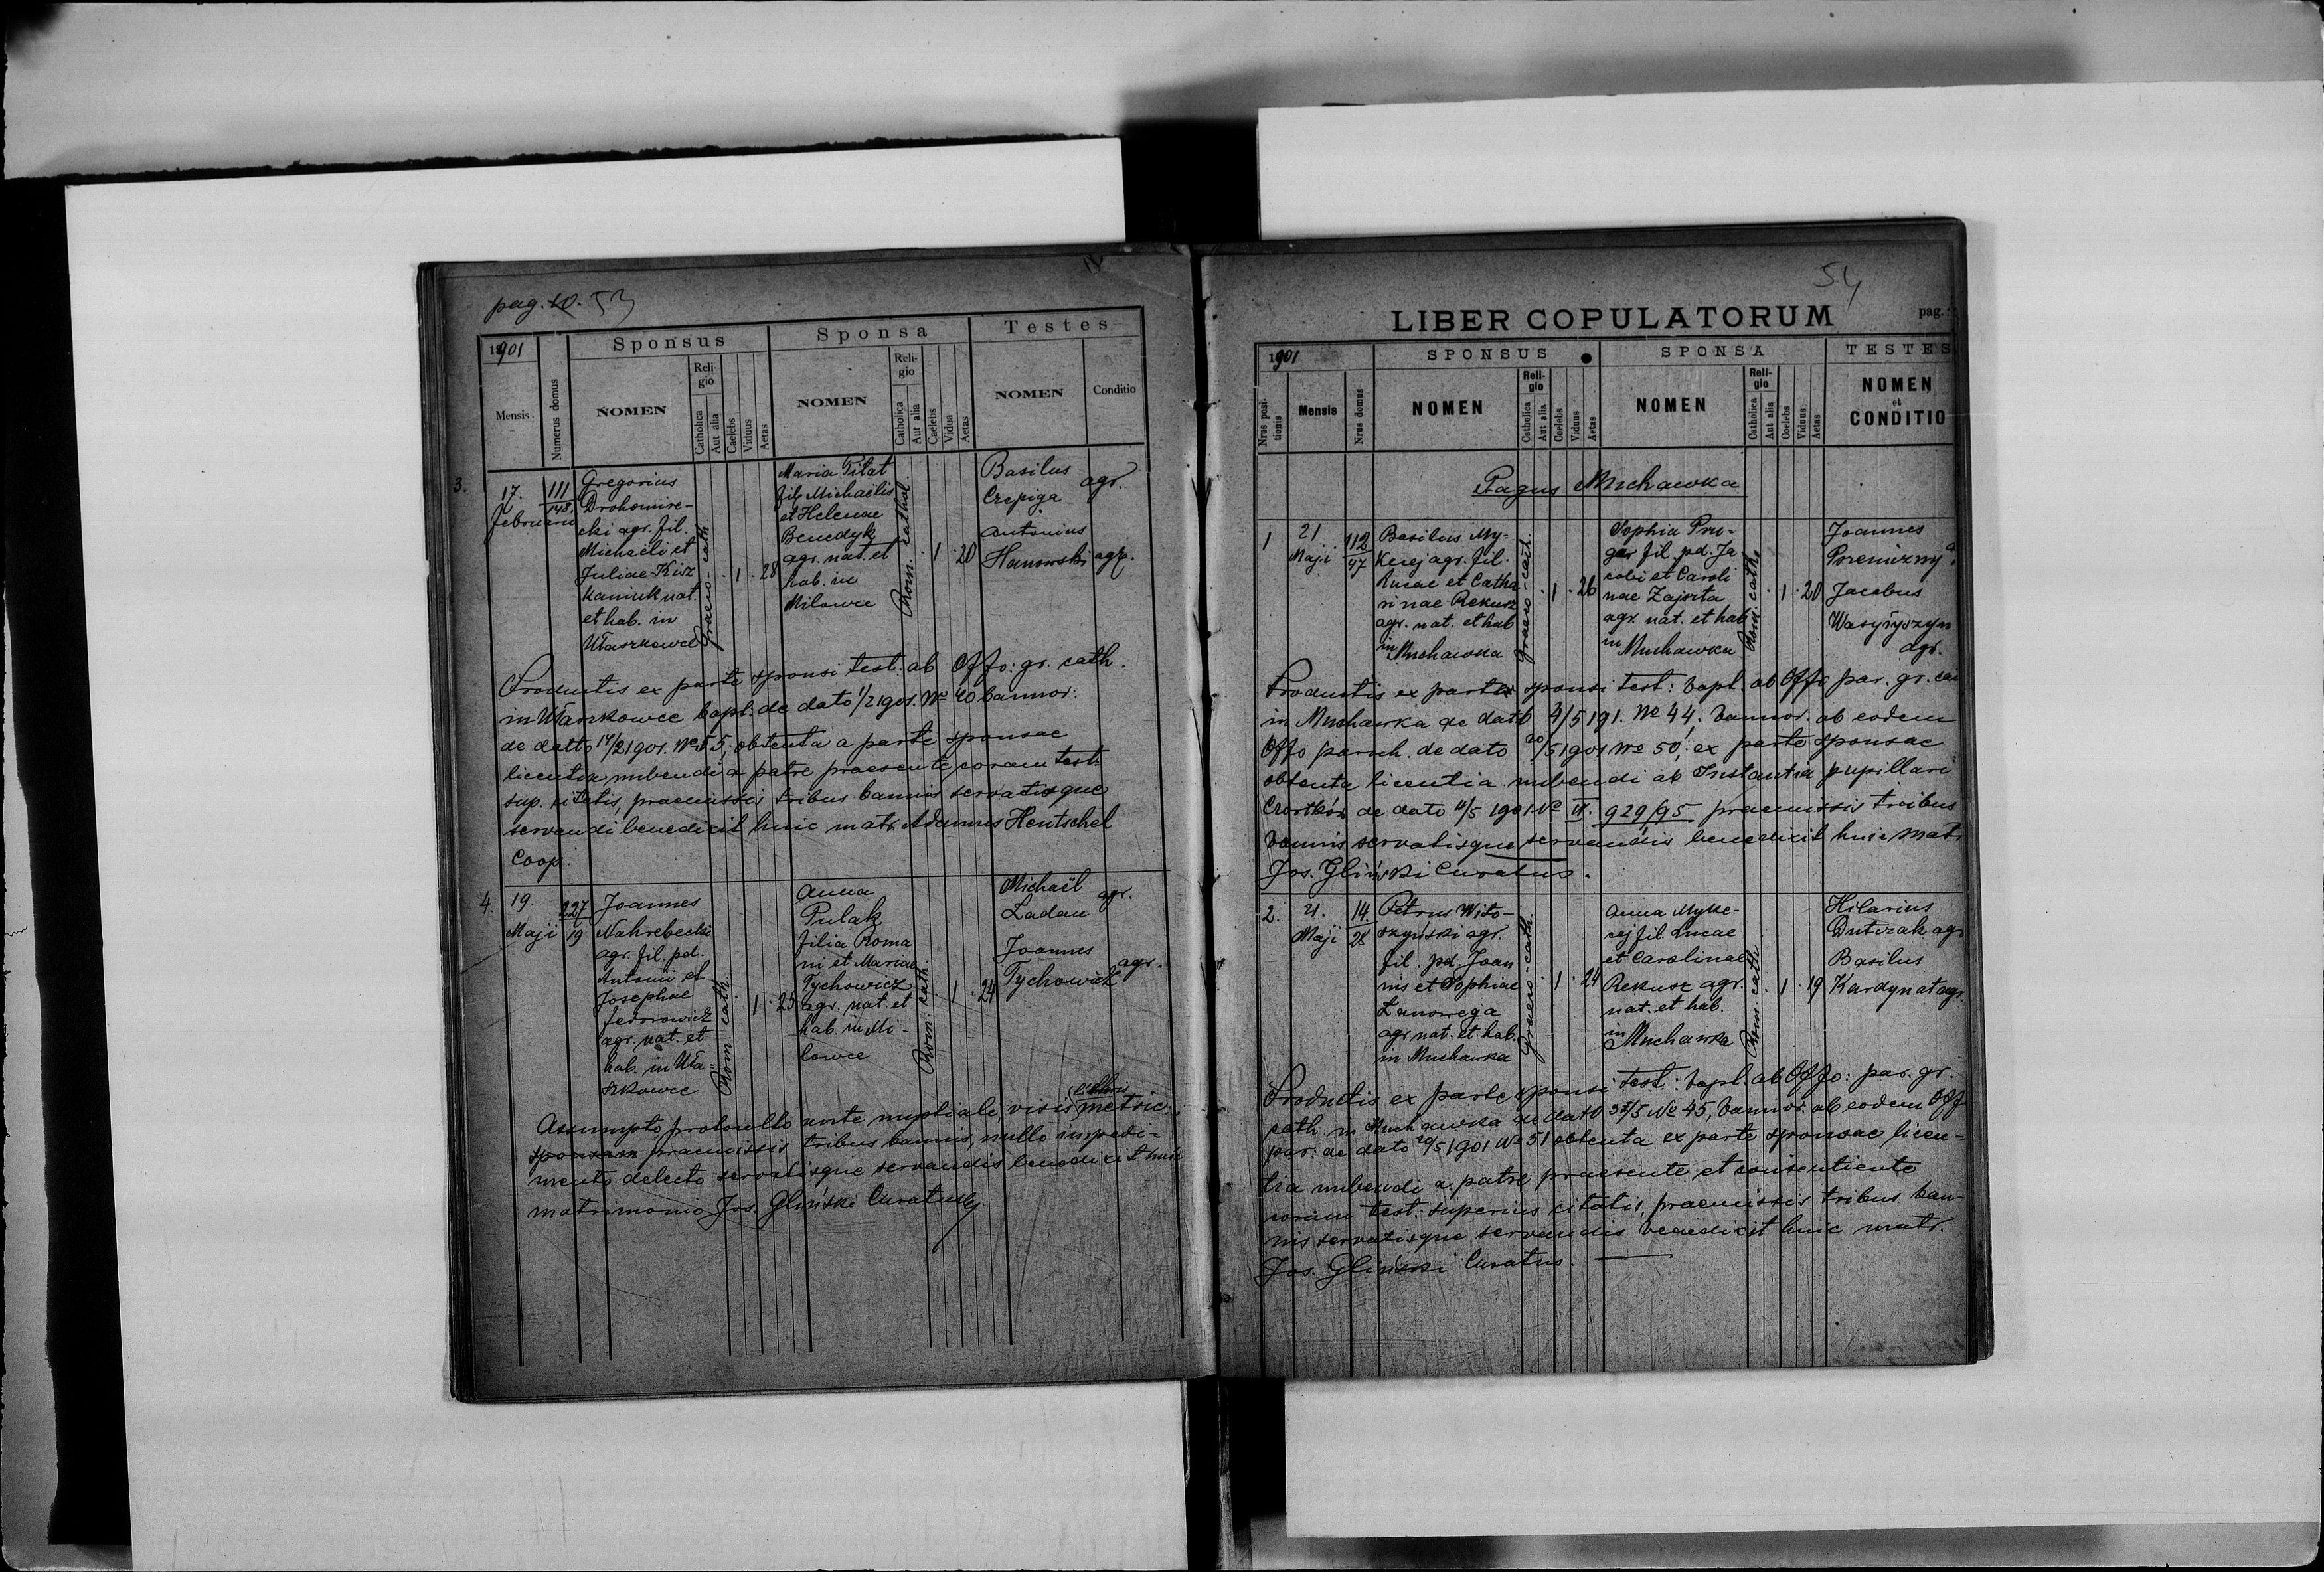 pag. 10. 53
1901
Sponsus
Sponsa
Testes
Mensis
Numerus domus
NOMEN
Religio
Catholica
Aut alia
Caelebs
Viduus
Aetas
NOMEN
Religio
Catholica
Aut alia
Caelebs
Vidua
Aetas
NOMEN
Conditio
3.
17.
Februarii
111
148
Gregorius
Drohomire-
cki agr. fil.
Michaëli et
Juliae Kisz
kaniuk nat.
et hab. in
Ułaszkowce
Graeco-cath
1
28
Maria Pitat
fil. Michaëlis
et Helenae
Benedyk
agr. nat. et
hab. in
Milowce
Rom. cathol
1
20
Basilus
Czepiga
agr.
Antonius
Hanowski agr.
Productis ex parte sponsi test. ab Offo: gr. cath.
in Ułaszkowce bapt. de dato 1/2 1901. No 40 bannor:
de datto 17/2 1901. No 55; obtenta a parte sponsae
licentia nubendi a patre praesente coram test:
sup. citatis, praemissis tribus bannis servatisque
servandi benedixit huic matr. Adamus Hentschel
Coop.
4.
19.
Maji
227
19
Joannes
Nahrebecki
agr. fil. pd.
Antonii et
Josephae
Fedorowicz
agr. nat. et
hab. in Uła-
szkowce
Rom. cath.
1
25
Anna
Pulak
filia Roma
ni et Mariae
Tychowicz
agr. nat. et
hab. in Mi-
lowce
Rom. cath.
1
24
Michaël
Ladan
agr.
Joannes
Tychowicz
agr.
Assumpto protocollo ante nuptiale, visis metric.
sponsam praemissis tribus bannis, nullo impedi-
mento detecto servatisque servandis benedixit huic
matrimonio Jos. Gliński Curatus
54
LIBER COPULATORUM
pag.
1901
SPONSUS
SPONSA
TESTES
Nrus posi-
tionis
Mensis
Nrus domus
NOMEN
Reli-
gio
Catholica
Aut alia
Coelebs
Viduus
Aetas
NOMEN
Reli-
gio
Catholica
Aut alia
Coelebs
Viduus
Aetas
NOMEN
et
CONDITIO
Pagus Muchawka
1
21
Maji
112
47
Basilus My-
kcej agr. fil.
Lucae et Catha
rinae Rekusz
agr. nat. et hab
in Muchawka
Graeco-cath.
1
26
Sophia Pru-
gar fil. pd. Ja
cobi et Caroli
nae Zajorta
agr. nat. et hab
in Muchawka
Rom. cath.
1
20
Joannes
Przemirzny
Jacobus
Wasylyszyn
agr.
Productis ex parte sponsi test: bapt. ab Offo par. gr. cat
in Muchawka de datto 4/5 191. No 44; bannor. ab eodem
Offo paroch. de dato 20/5 1901 No 50; ex parte sponsae
obtenta licentia nubendi ab Instantia pupillari
Czortków de dato 4/5 1901 No VI. 929/95 praemissis tribus
bannis servatisque servandis benedixit huic matr
Jos. Gliński Curatus.
2.
21.
Maji
14.
28
Petrus Wito-
szyński agr.
fil. pd. Joan
nis et Sophiae
Łanowega
agr. nat. et hab.
in Muchawka
Graeco-cath.
1
24
Anna Myke-
cej fil. Lucae
et Carolinae
Rekusz agr.
nat. et hab.
in
Muchawka
Rom. cath.
1
19
Hilarius
Dutczak agr
Basilus
Kardynat agr.
Productis ex parte sponsi test: bapt. ab Offo: par. gr.
cath. in Muchawka de dato /5 No 45, bannor. ab eodem Off
par: de dato 20/5 1901 No 51 obtenta ex parte sponsae licen-
tia nubendi a patre praesente et consentiente
coram test: superius citatis, praemissis tribus ban-
nis servatisque servandis benedixit huic matr.
Jos. Gliński Curatus.